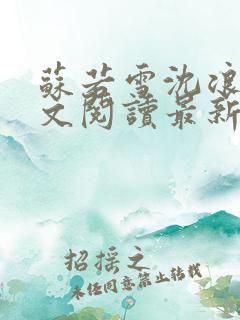 蘇若雪沈浪
文閱讀最新
招摇之
未经同意禁止转载